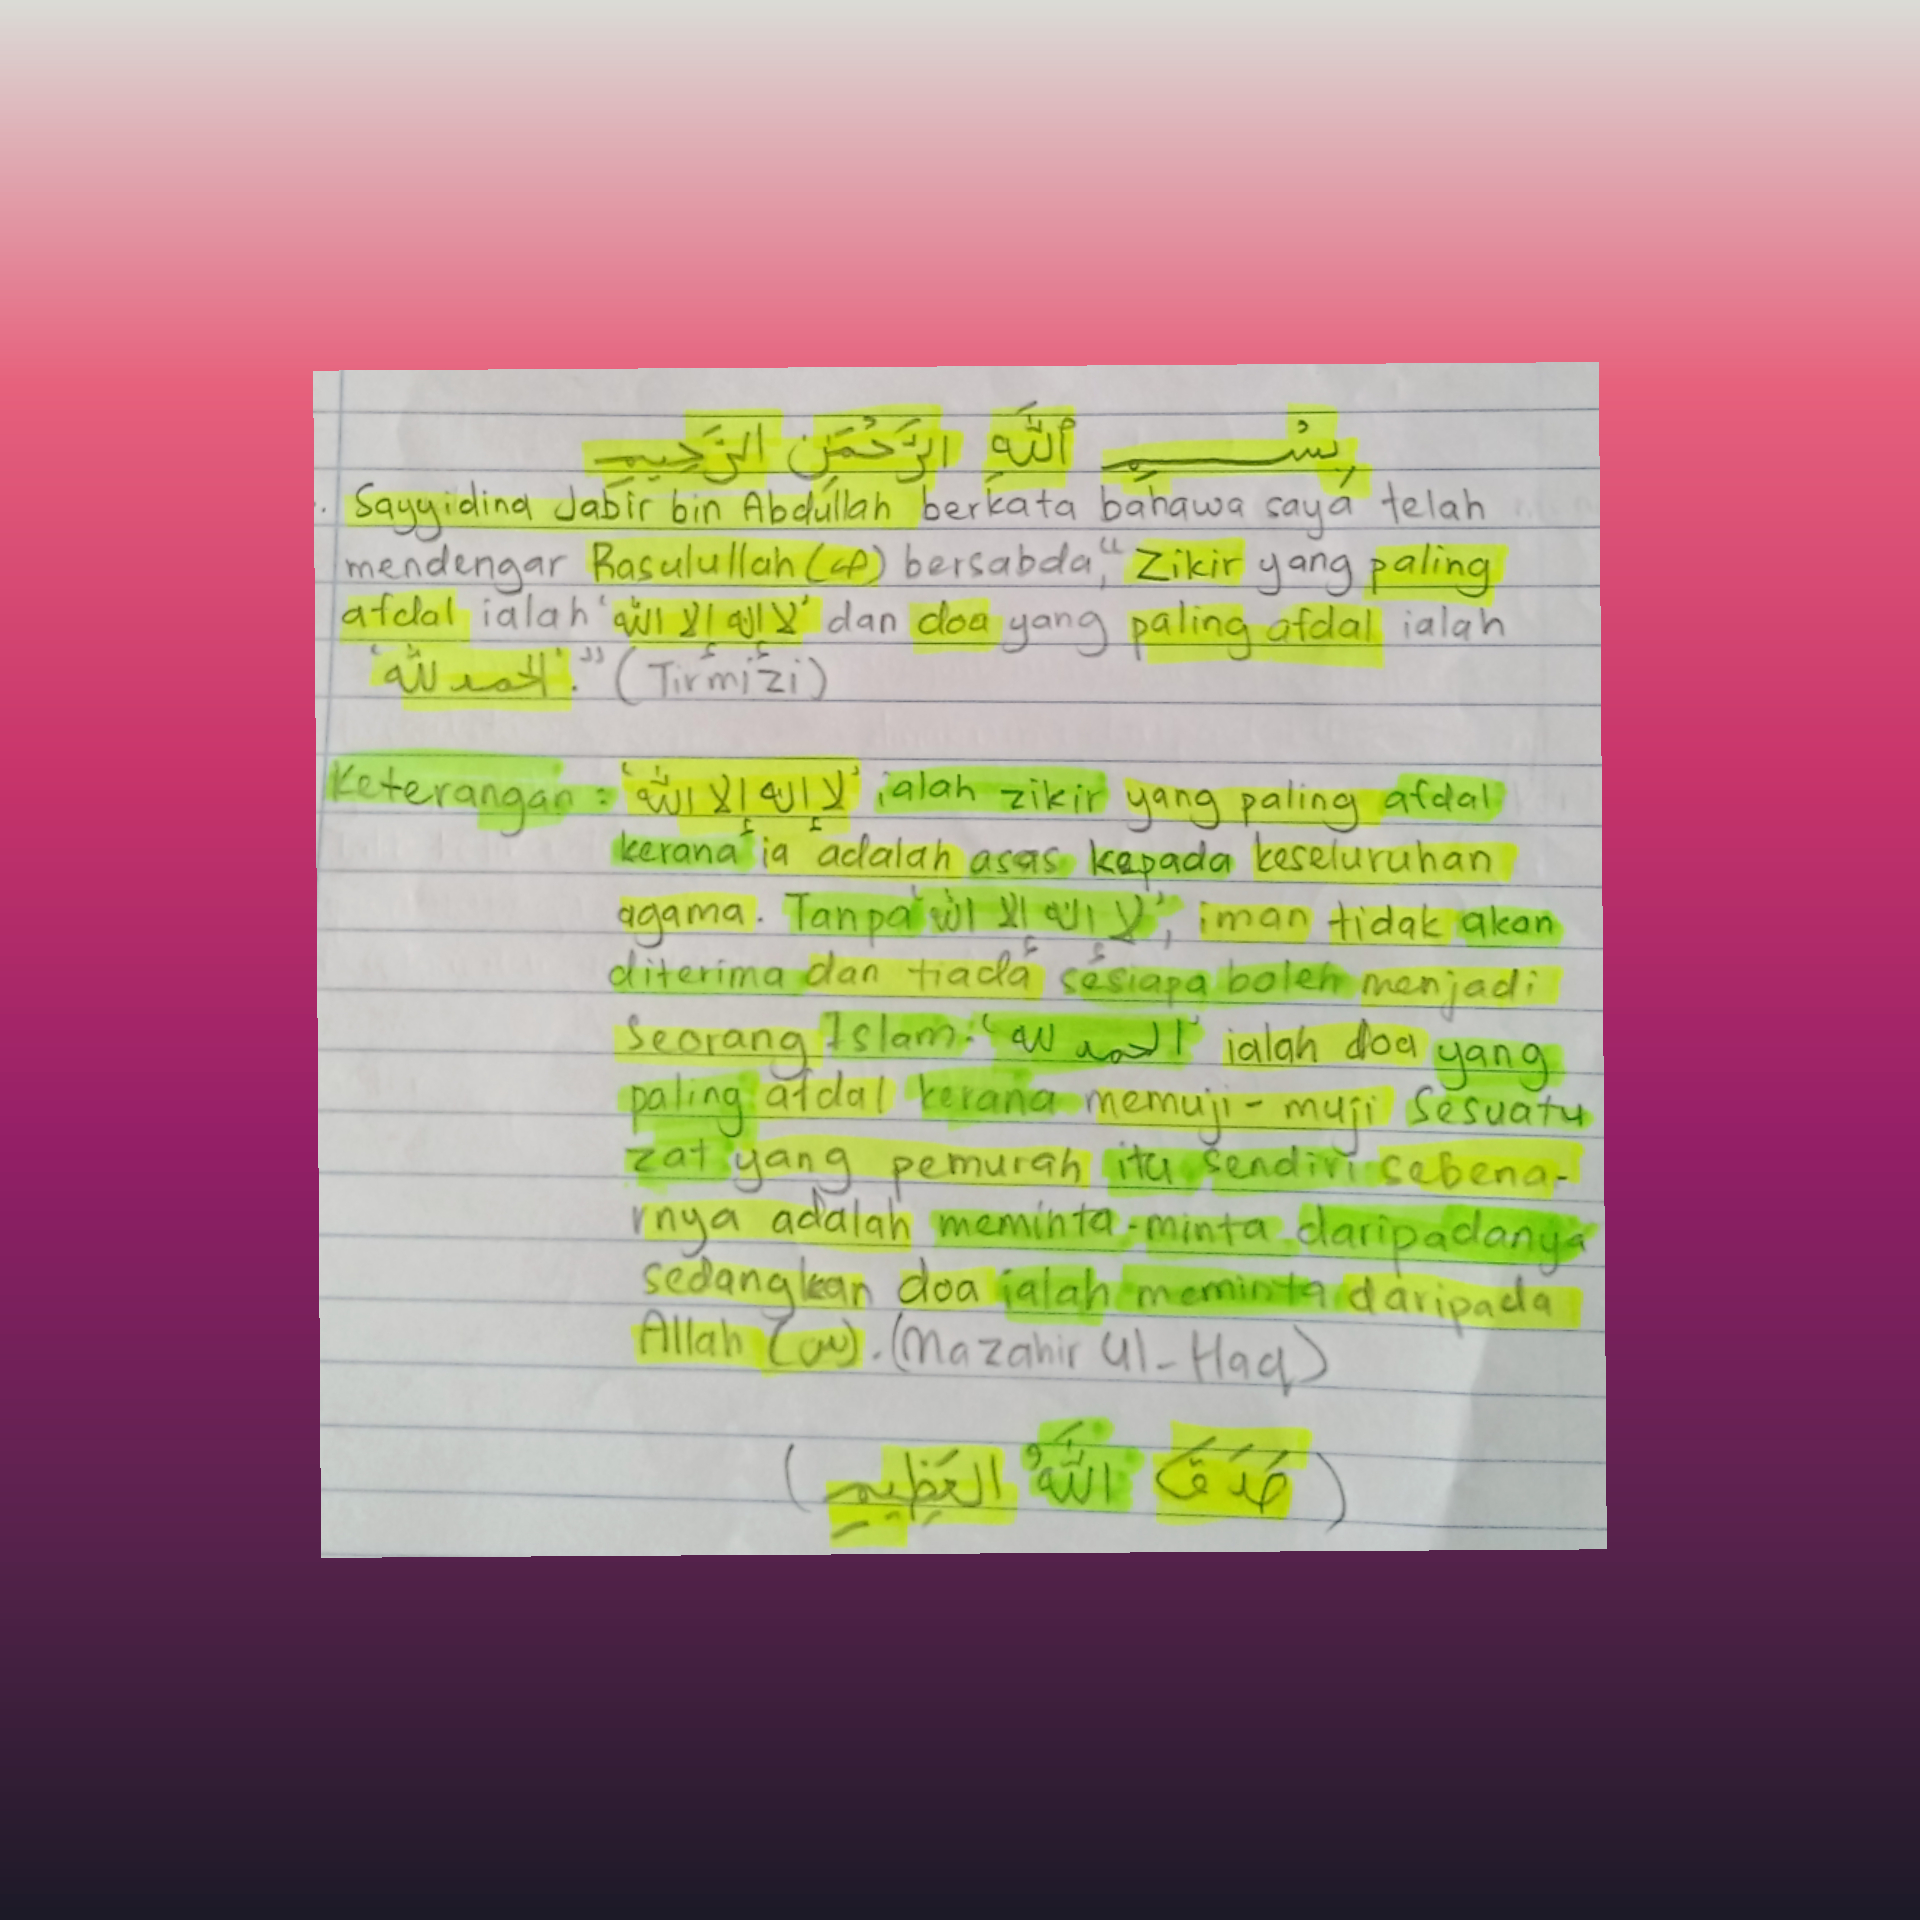 بِسْمِ ٱللَّهِ الرَّحْمَٰنِ الرَّحِيمِ
. Sayyidina Jabir bin Abdullah berkata bahawa saya telah
mendengar Rasulullah () bersabda, "Zikir yang paling
afdal ialah 'لا اله إلا اللّٰه' dan doa yang paling afdal ialah
'الحمد للّٰه'." (Tirmizi)
Keterangan : 'لا اله إلا اللّٰه' ialah zikir yang paling afdal
kerana ia adalah asas kepada keseluruhan
agama. Tanpa 'لا اله إلا الله', iman tidak akan
diterima dan tiada sesiapa boleh menjadi
seorang Islam. 'الحمد لله' ialah doa yang
paling afdal kerana memuji-muji sesuatu
zat yang pemurah itu sendiri sebena-
rnya adalah meminta-minta daripadanya
sedangkan doa ialah meminta daripada
Allah (). (Mazahir Ul-Haq)
(صَدَقَ اللَّهُ العَظِيمِ)